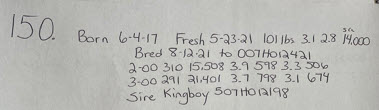 150. Born 6-4-17 Fresh 5-23-21 101 lbs 3.1 2.8 scc 14,000
Bred 8-12-21 to 007HO12421
2-00 310 15,508 3.9 598 3.3 506
3-00 291 21,401 3.7 798 3.1 674
Sire Kingboy 507HO12198